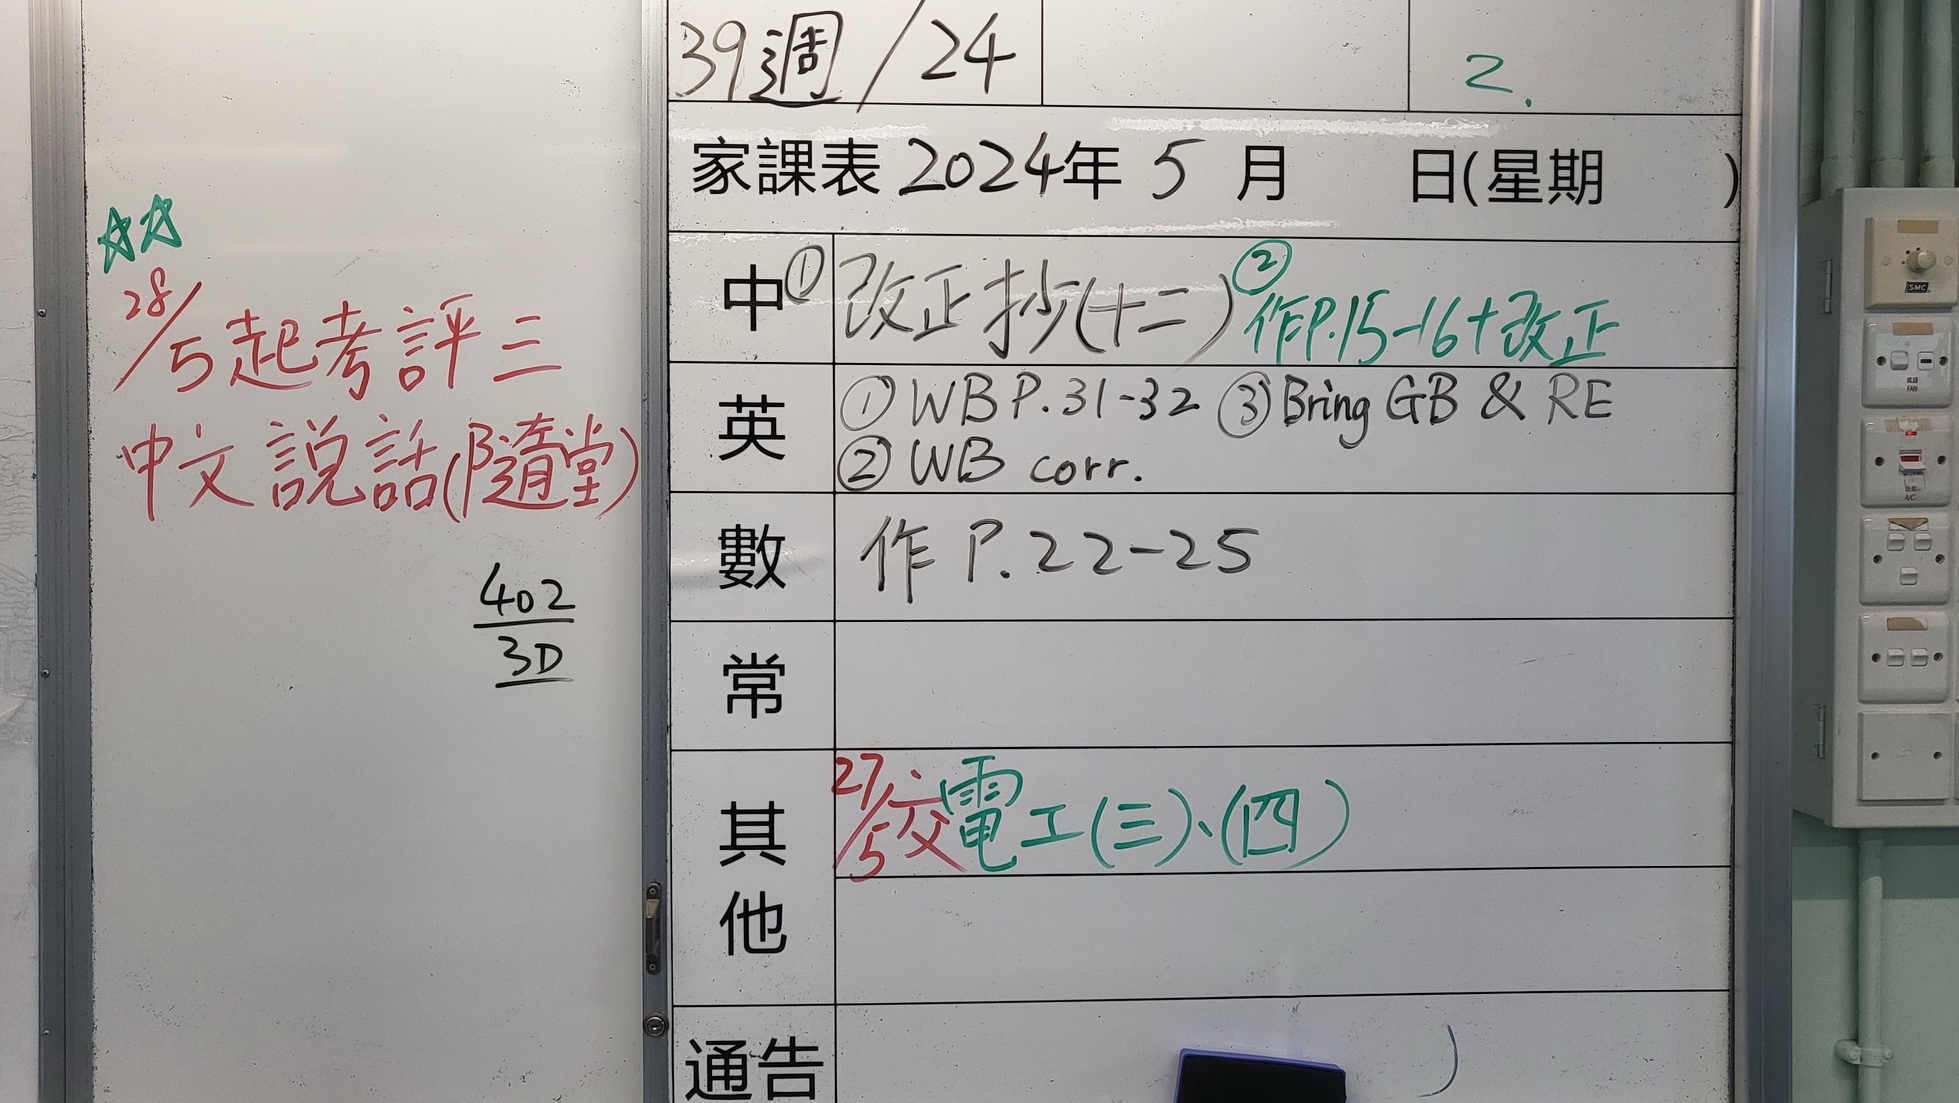 28/5起考評三
中文說話(隨堂)
402
3D
39週/24
2.
家課表2024年5月 日(星期 )
中 ①改正抄(十二) ②作P.15-16+改正
英 ①WB P.31-32 ③Bring GB & RE
②WB corr.
數 作 P.22-25
常
其他 27/5交電工(三)、(四)
通告
SMC
FAN
A/C